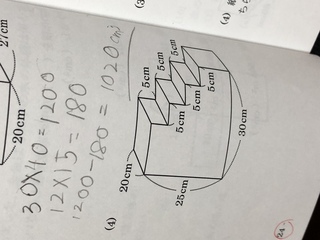 27cm
20cm
30×40=1200
12×15=180
1200-180=1020cm³
(4)
5cm
5cm
5cm
5cm
5cm
5cm
20cm
25cm
30cm
(3
(4)
ちら
24